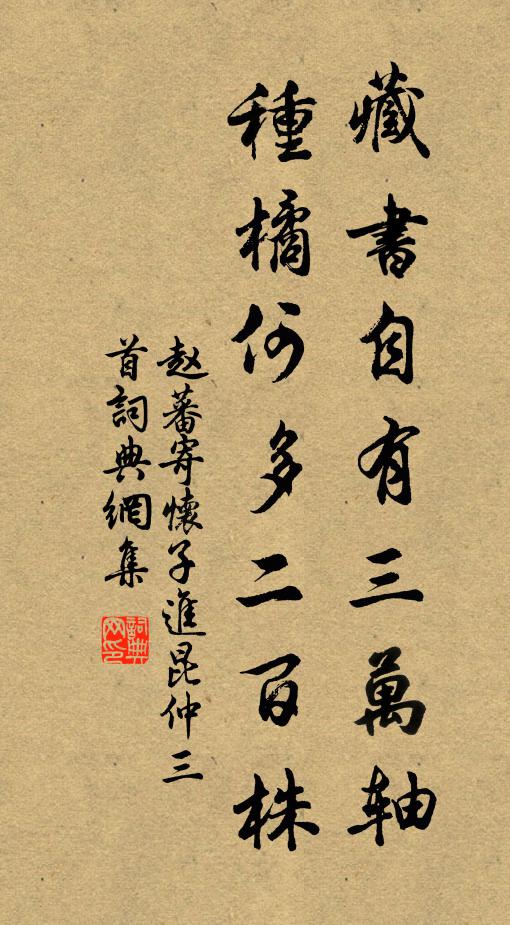 藏書自有三萬軸
種橘何多二百株
赵蕃寄懷子進昆仲三
首詞典網集
詞典网印